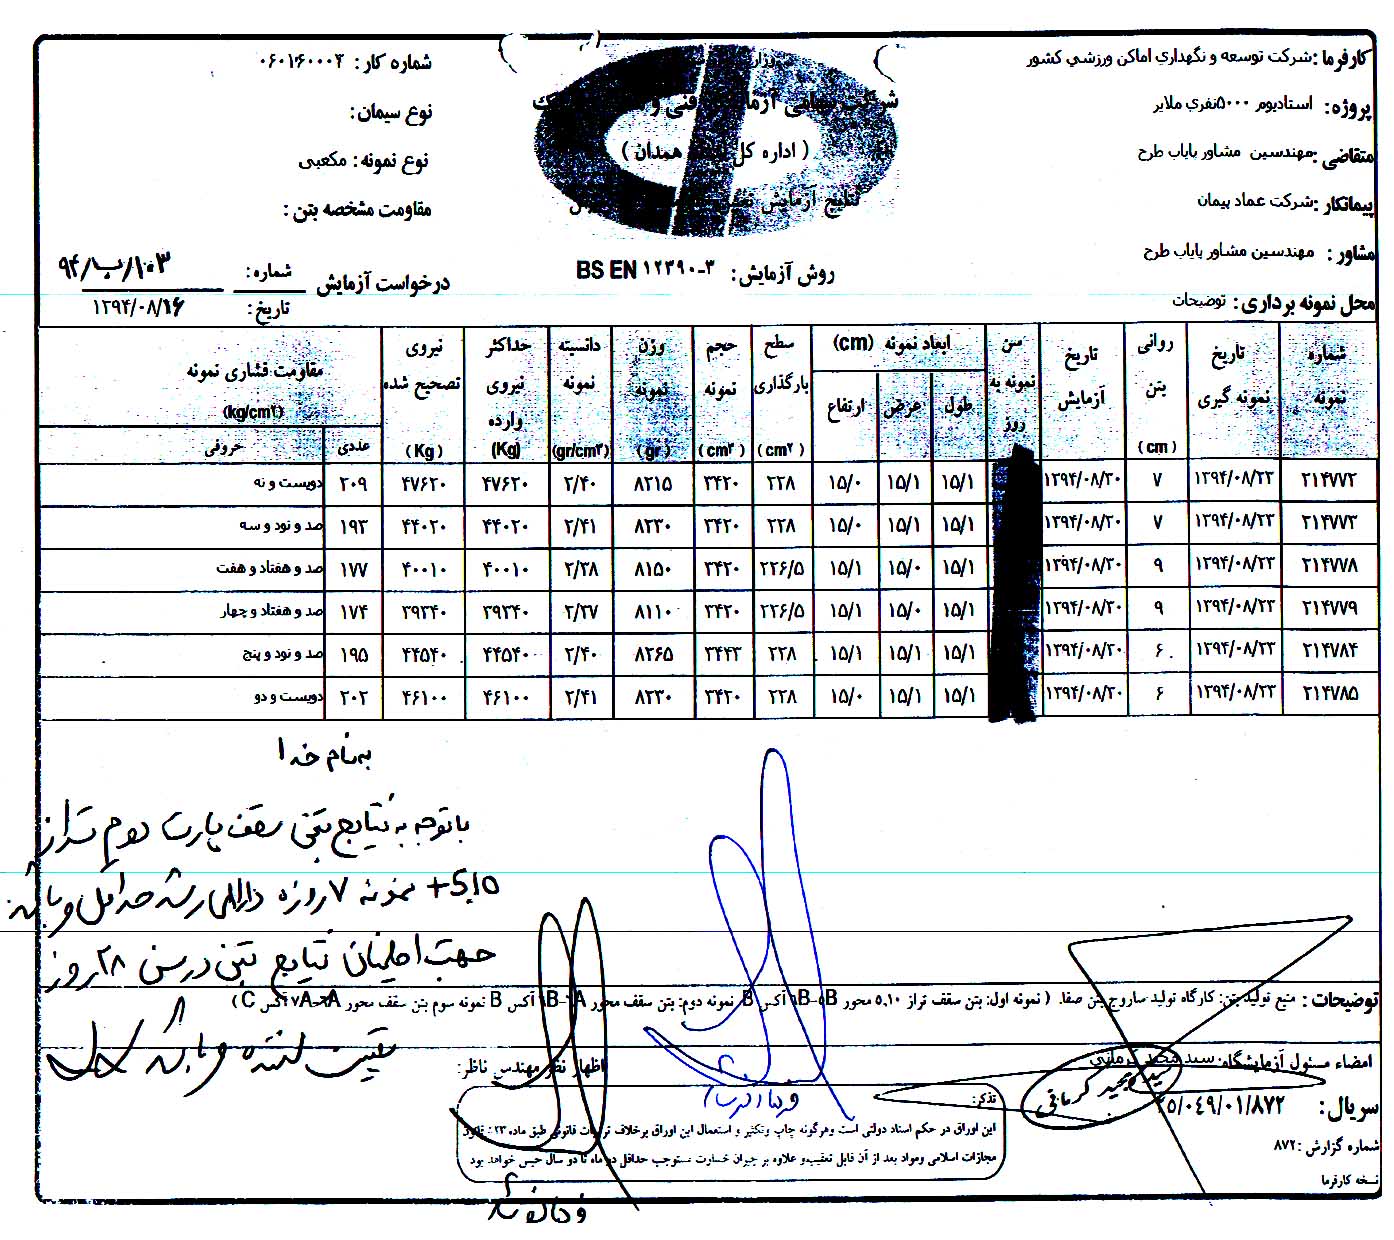 کارفرما : شرکت توسعه و نگهداري اماکن ورزشي کشور
پروژه: استاديوم ۵۰۰۰نفري ملاير
متقاضی :مهندسين مشاور پاياب طرح
پيمانکار : شرکت عماد پيمان
مشاور : مهندسين مشاور پاياب طرح
محل نمونه برداری : توضيحات
( اداره کل همدان )
روش آزمایش: BS EN ۱۲۳۹۰-۳
شماره کار : ۰۶۰۱۶۰۰۰۲
نوع سیمان:
نوع نمونه: مکعبی
مقاومت مشخصه بتن :
درخواست آزمایش
شماره : ۹۴/ب/۱۰۳
تاریخ : ۱۳۹۴/۰۸/۱۶
شماره نمونه | تاریخ نمونه گیری | روانی بتن (cm) | تاریخ آزمایش | سن نمونه به روز | ابعاد نمونه (cm) طول عرض ارتفاع | سطح بارگذاری (cm۲) | حجم نمونه (cm۳) | وزن نمونه (gr) | دانسیته نمونه (gr/cm۳) | حداکثر نیروی وارده (Kg) | نیروی تصحیح شده (Kg) | مقاومت فشاری نمونه (kg/cm۲) عددی حروفی
۲۱۴۷۷۲ ۱۳۹۴/۰۸/۲۳ ۷ ۱۳۹۴/۰۸/۳۰ ۱۵/۱ ۱۵/۱ ۱۵/۰ ۲۲۸ ۳۴۲۰ ۸۲۱۵ ۲/۴۰ ۴۷۶۲۰ ۴۷۶۲۰ ۲۰۹ دویست و نه
۲۱۴۷۷۳ ۱۳۹۴/۰۸/۲۳ ۷ ۱۳۹۴/۰۸/۳۰ ۱۵/۱ ۱۵/۱ ۱۵/۰ ۲۲۸ ۳۴۲۰ ۸۲۳۰ ۲/۴۱ ۴۴۰۲۰ ۴۴۰۲۰ ۱۹۳ صد و نود و سه
۲۱۴۷۷۸ ۱۳۹۴/۰۸/۲۳ ۹ ۱۳۹۴/۰۸/۳۰ ۱۵/۱ ۱۵/۰ ۱۵/۱ ۲۲۶/۵ ۳۴۲۰ ۸۱۵۰ ۲/۳۸ ۴۰۰۱۰ ۴۰۰۱۰ ۱۷۷ صد و هفتاد و هفت
۲۱۴۷۷۹ ۱۳۹۴/۰۸/۲۳ ۹ ۱۳۹۴/۰۸/۳۰ ۱۵/۱ ۱۵/۰ ۱۵/۱ ۲۲۶/۵ ۳۴۲۰ ۸۱۱۰ ۲/۳۷ ۳۹۳۴۰ ۳۹۳۴۰ ۱۷۴ صد و هفتاد و چهار
۲۱۴۷۸۴ ۱۳۹۴/۰۸/۲۳ ۶ ۱۳۹۴/۰۸/۳۰ ۱۵/۱ ۱۵/۱ ۱۵/۱ ۲۲۸ ۳۴۴۳ ۸۲۶۵ ۲/۴۰ ۴۴۵۴۰ ۴۴۵۴۰ ۱۹۵ صد و نود و پنج
۲۱۴۷۸۵ ۱۳۹۴/۰۸/۲۳ ۶ ۱۳۹۴/۰۸/۳۰ ۱۵/۱ ۱۵/۱ ۱۵/۰ ۲۲۸ ۳۴۲۰ ۸۲۳۰ ۲/۴۱ ۴۶۱۰۰ ۴۶۱۰۰ ۲۰۲ دویست و دو
به نام خدا
با توجه به نتایج بتن سقف پارت دوم تراز
+5,10 نمونه ۷ روزه دارای رشد حداقل و باشد
جهت اطمینان نتایج بتن در سن ۲۸ روز
توضیحات : منبع توليد بتن: کارگاه توليد ساروج بتن صفا. ( نمونه اول: بتن سقف تراز ۵,۱۰ محور ۶B-۵B آکس B نمونه دوم: بتن سقف محور آکس B نمونه سوم بتن سقف محور آکس C )
امضاء مسئول آزمایشگاه: سيد مجيد کرماني
سید مجید کرمانی
اظهار نظر مهندس ناظر:
سریال: ۲۵/۰۴۹/۰۱/۸۷۲
شماره گزارش :۸۷۲
نسخه کارفرما
تذکر:
این اوراق در حکم اسناد دولتی است وهرگونه چاپ وتکثیر و استعمال این اوراق برخلاف ترتیبات قانونی طبق ماده ۵۲۳ قانون
مجازات اسلامی ومواد بعد از آن قابل تعقیب و علاوه بر جبران خسارت مستوجب حداقل دو ماه تا دو سال حبس خواهد بود